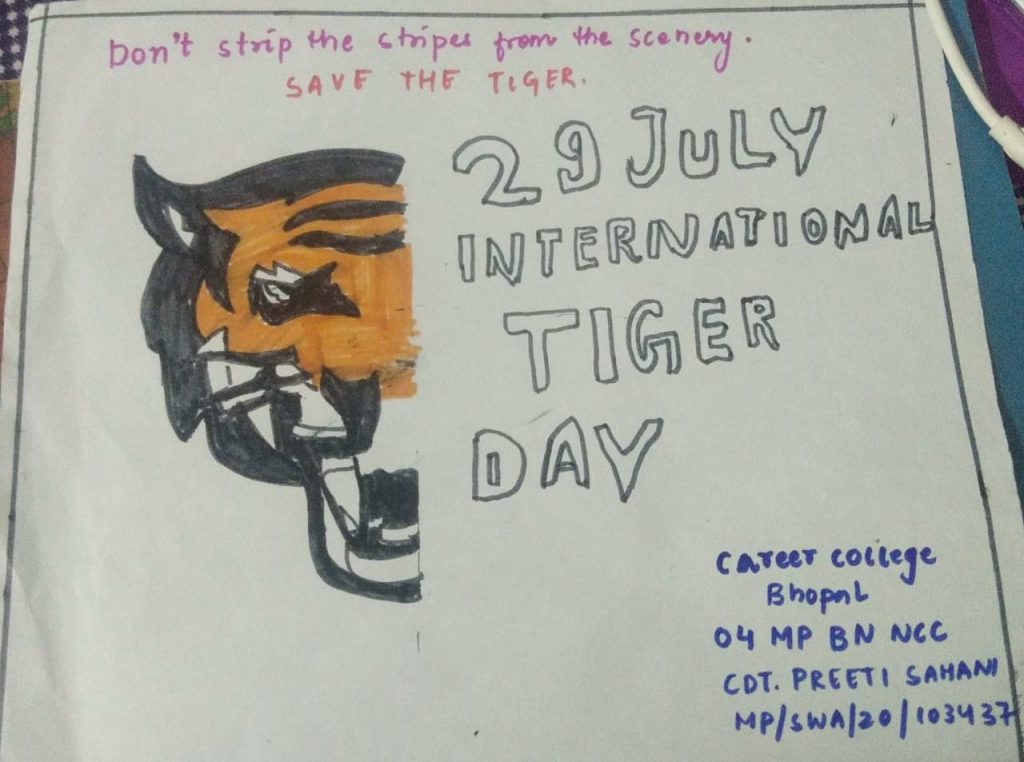 Don't strip the stripes from the scenery.
SAVE THE TIGER.
29 JULY
INTERNATIONAL
TIGER
DAY
Career college
Bhopal
04 MP BN NCC
CDT. PREETI SAHANI
MP/SWA/20/103437